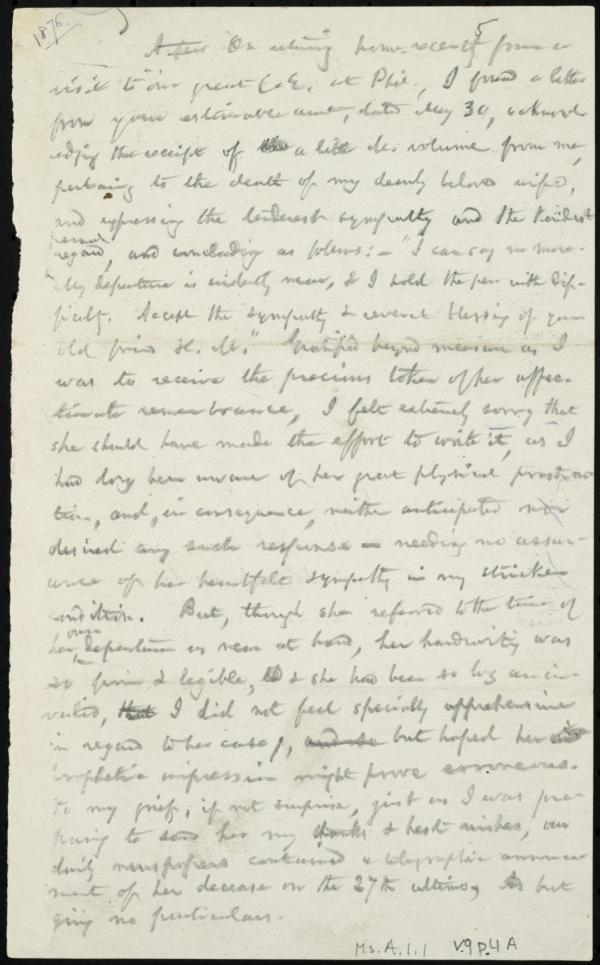 1876.
On returning home recently from a
visit to our great C. E. at Phil., I found a letter
from your estimable aunt, dated May 30, acknowl-
edging the receipt of a little Me. volume from me,
pertaining to the death of my dearly beloved wife,
and expressing the tenderest sympathy and the kindest
personal
regard, and concluding as follows:— "I can say no more.
My departure is evidently near, & I hold the pen with dif-
ficulty. Accept the sympathy & reverent blessing of your
old friend H. M." Gratified beyond measure as I
was to receive the precious token of her affec-
tionate remembrance, I felt extremely sorry that
she should have made the effort to write it, as I
had long been aware of her great physical prostra-
tion, and, in consequence, neither anticipated nor
desired any such response — needing no assur-
ance of her heartfelt sympathy in my stricken
condition. But, though she referred to the time of
own
her departure as near at hand, her handwriting was
so firm & legible, & she had been so long an in-
valid, that I did not feel specially apprehensive
in regard to her case, and so but hoped her
prophetic impression might prove erroneous.
To my grief, if not surprise, just as I was pre-
paring to send her my thanks & best wishes, our
daily newspapers contained a telegraphic announce-
ment of her decease on the 27th ultimo, but
giving no particulars.
Ms. A. 1. 1 v. 9 p. 4 A